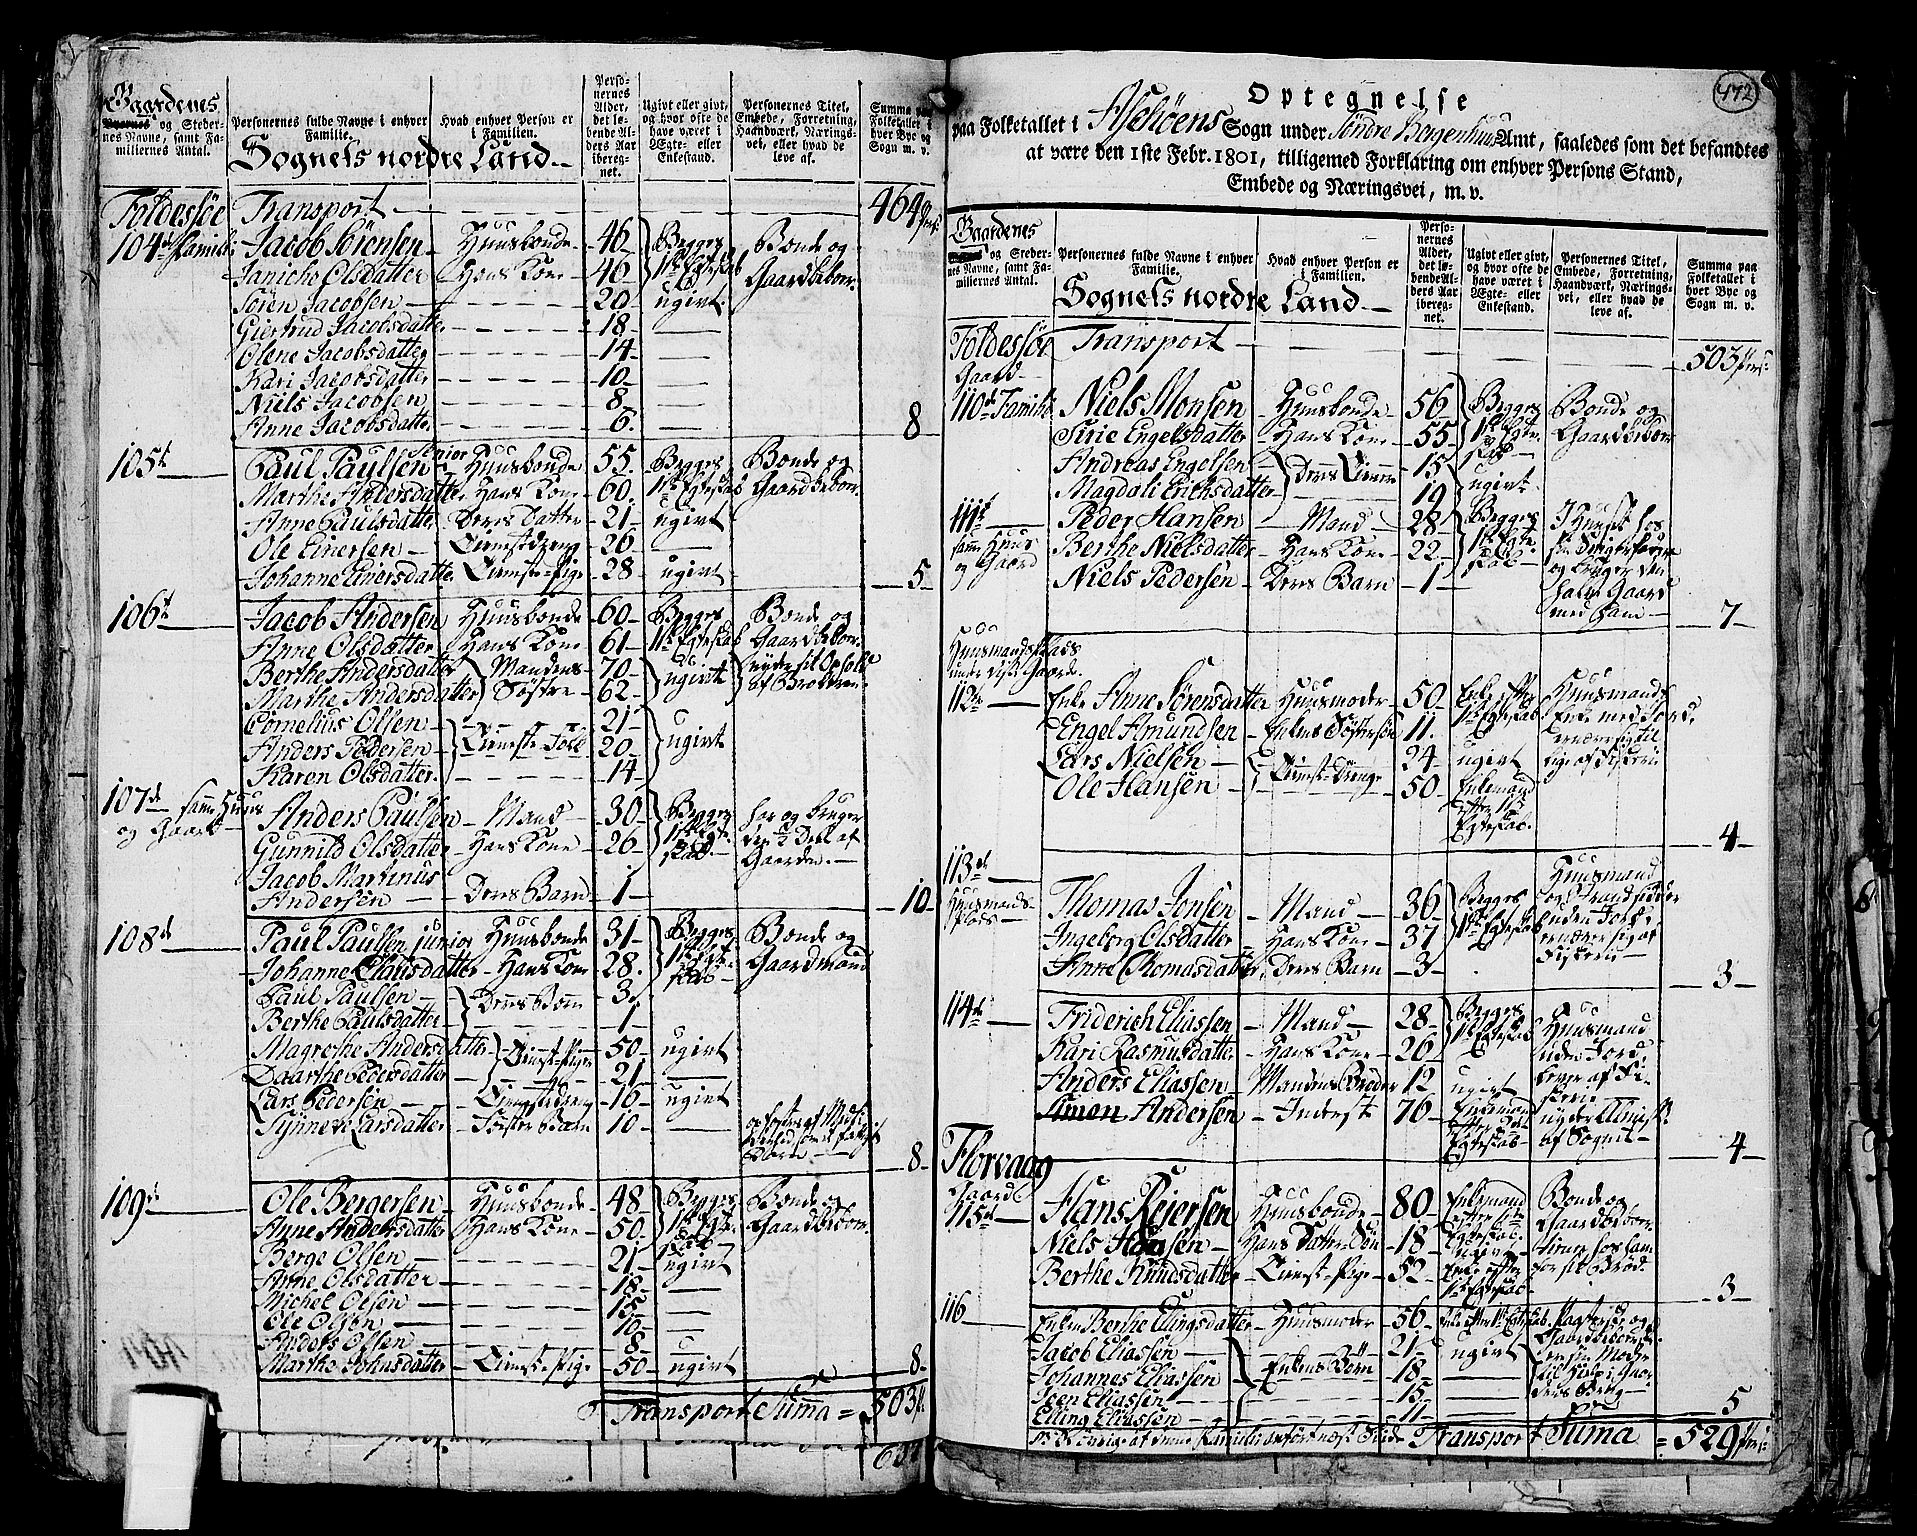 Gaardenes
Byernes og Steder-
nes Navne, samt Fa-
miliernes Antal.
Personernes fulde Navne i enhver
Familie.
Hvad enhver Person er
i Familien.
Perso-
nernes
Alder,
det lø-
bende Al-
ders Aar
iberegnet.
Ugivt eller givt,
og hvor ofte de
have været i
Ægte- eller
Enkestand.
Personernes Titel,
Embede, Forretning,
Haandværk, Nærings-
vei, eller hvad de
leve af.
Summa paa
Folketallet i
hver Bye og
Sogn m. v.
Sognets nordre Land.
Foldessøe Transport 464 Pers:
104de Famil: Jacob Sørensen Huusbonde 46 Begges 1ste Egteskab Bonde og Gaardbeboer
Janiche Olsdatter Hans Kone 46
Søren Jacobsen 20 ugivt
Giertrud Jacobsdatter 18
Olene Jacobsdatter 14
Kari Jacobsdatter 10
Niels Jacobsen 8
Anne Jacobsdatter 6 8
105te Paul Paulsen Senior Huusbonde 55 Begges 1ste Egteskab Bonde og Gaardbeboer
Marthe Andersdatter Hans Kone 60
Anne Paulsdatter Deres Datter 21 ugivt
Ole Einersen Tienestdreng 26
Johanne Einersdatter Tieneste-Pige 28 ugivt 5
106te Jacob Andersen Huusbonde 60 Begges 1ste Egteskab Bonde og Gaardbeboer
Anne Olsdatter Hans Kone 61
Berthe Andersdatter Mandens Søstre 70 ugivt nyder sit Ophold af Broderen
Marthe Andersdatter 62
Cornelius Olsen Tieneste-Folk 21 ugivt
Anders Pedersen 20
Karen Olsdatter 14
107de samme Huus og Gaard Anders Paulsen Mand 30 Begges 1ste Egteskab har og bruger den 1/2 Deel af Gaarden.
Gunnild Olsdatter Hans Kone 26
Jacob Martinus
Andersen Deres Barn 1 10
108de Paul Paulsen junior Huusbonde 31 Begges 1ste Egteskab Bonde og Gaardmand
Johanne Clausdatter Hans Kone 28
Paul Paulsen Deres Børn 3
Berthe Paulsdatter 1
Magrethe Andersdatter Tienest-Piger 50 ugivt
Daarthe Pedersdatter 21
Lars Pedersen Tienestdreng 16 ugivt
Synneve Larsdatter Søster Barn 10 8
109de Ole Bergersen Huusbonde 48 Begges 1ste Egteskab Bonde og Gaardbeboer
Anne Andersdatter Hans Kone 50
Berge Olsen 21 ugivt
Anne Olsdatter 18
Michel Olsen 15
Ole Olsen 10
Anders Olsen 8
Marthe Johnsdatter Tienest-Pige 50 ugivt 8
Transport Suma = 503 P.
472
Optegnelse
paa Folketallet i Askøens Sogn under Søndre Bergenhuus Amt, saaledes som det befandtes
at være den 1ste Febr. 1801, tilligemed Forklaring om enhver Persons Stand,
Embede og Næringsvei, m. v.
Gaardenes
Byernes og Steder-
nes Navne, samt Fa-
miliernes Antal.
Personernes fulde Navne i enhver
Familie.
Hvad enhver Person er
i Familien.
Perso-
nernes
Alder,
det lø-
bende Al-
ders Aar
iberegnet.
Ugivt eller givt,
og hvor ofte de
have været i
Ægte- eller
Enkestand.
Personernes Titel,
Embede, Forretning,
Haandværk, Nærings-
vei, eller hvad de
leve af.
Summa paa
Folketallet i
hver Bye og
Sogn m. v.
Sognets nordre Land
Foldessøe Gaard Transport 503 Pers:
110de Familie Niels Monsen Huusbonde 56 Begges 1ste Egteskab Bonde og Gaardbeboer
Sirie Engelsdatter Hans Kone 55
Andreas Engelsen Deres Tienere 15 ugivt
Magdali Ericksdatter 19
111te samme Huus og Gaard Peder Hansen Mand 28 Begges 1ste Egteskab
Berthe Nielsdatter Hans Kone 22 og bruger den
Niels Pedersen Deres Barn 1 halve Gaard med ham 7
Huusmandsplads under disse Gaarde
112te Enke Anne Sørensdatter Huusmoder 50 Enke efter 1ste Egteskab Huusmands Enke med Jord, ernærer sig tillige af Fiskerie
Engel Amundsen Enkens Søstersøn 11
Lars Nielsen Tienest-Drenge 24 ugivt
Ole Hansen 50 Enkemand efter 1ste Egteskab. 4
113de Huusmands Plads Thomas Jonsen Mand 36 Begges 1ste Egteskab Huusmand og Strandsidder uden Jord, ernærer sig af Fiskerie
Ingeborg Olsdatter Hans Kone 37
Anne Thomasdatter Deres Barn 3 3
114de Friderich Eliassen Mand 28 Begges 1ste Egteskab Huusmand uden Jord, lever af Fiskerie
Kari Rasmusdatter Hans Kone 26
Anders Eliassen Mandens Broder 12 ugivt
Simon Andersen Inderst 76 Enkemand efter Egteskab nyder Almisse af Sognet 4
Florvaag Gaard
115de Hans Reiersen Huusbonde 80 Enkemand efter Egteskab Bonde og Gaardbeboer
Niels Hansen Hans Søn 18 ugivt
Berthe Knudsdatter Tienest-Pige 52 Enke efter 1ste Egteskab 3
116 Enke Berthe Ellingsdatter Huusmoder 56 Enke efter 1ste Egteskab
Jacob Eliassen Enkens Børn 21 ugivt
Johannes Eliassen 18
Joen Eliassen 15
Elling Eliassen 11 5
Transport Suma = 529 Pers: